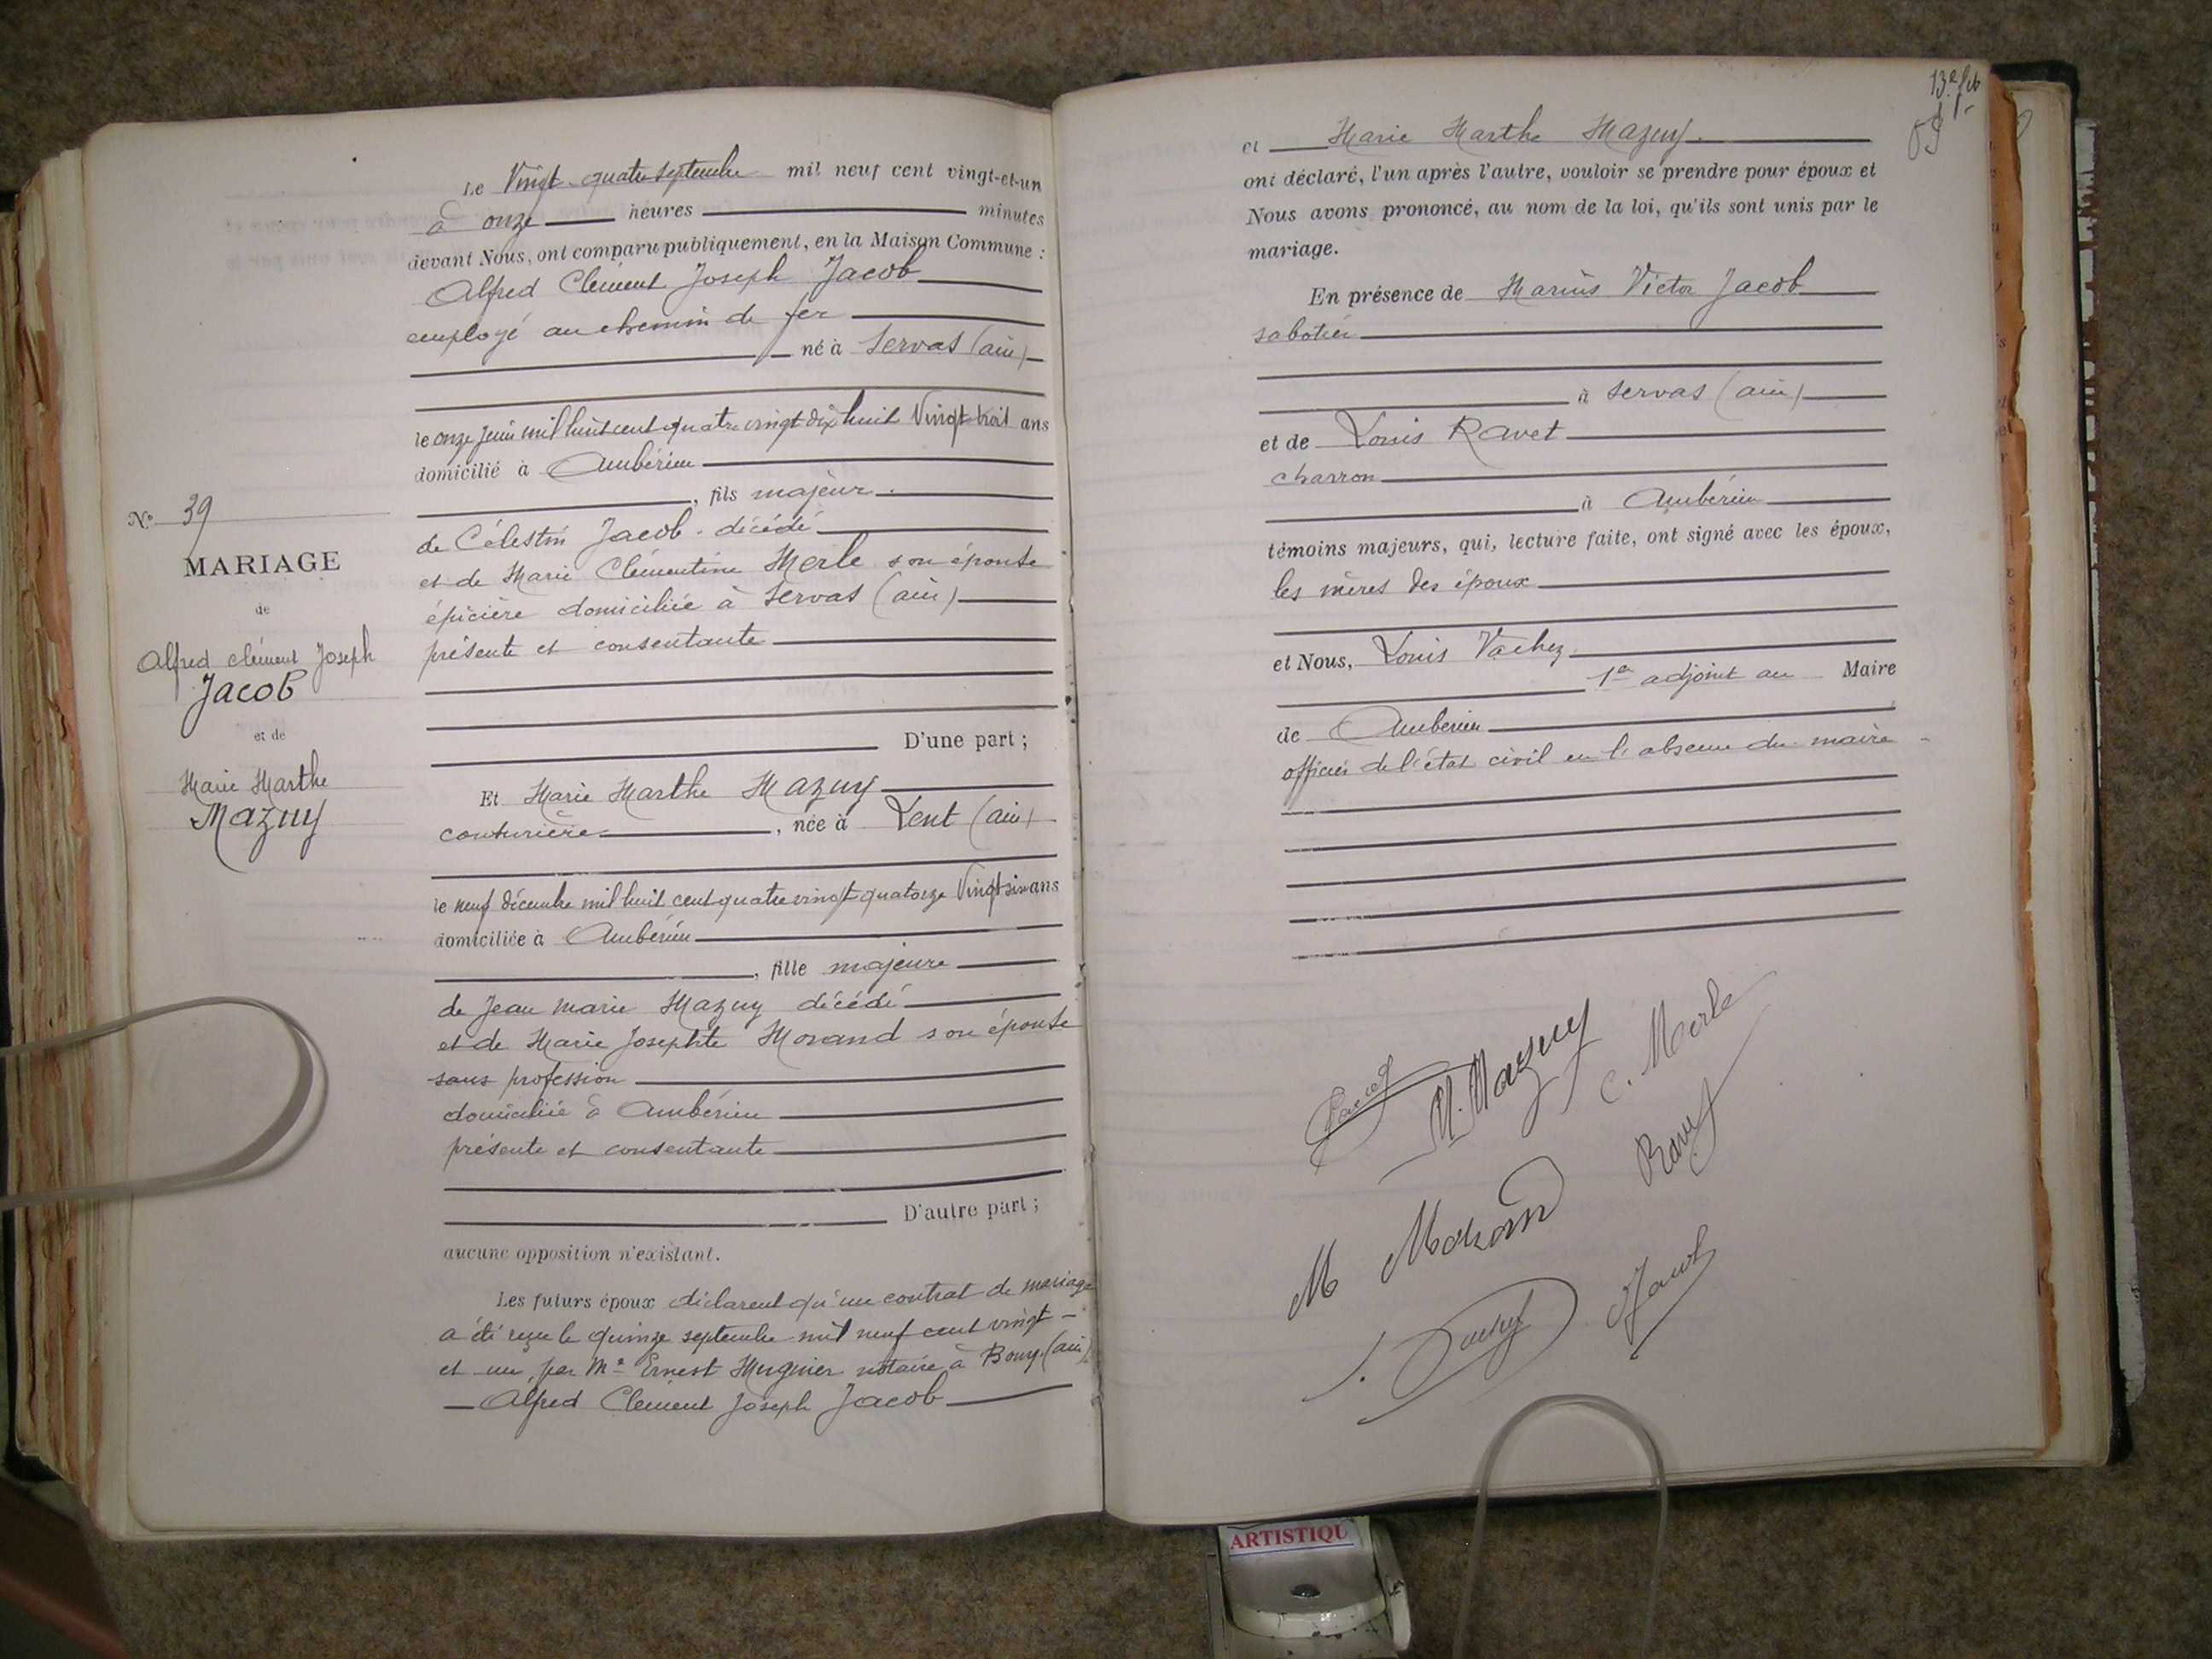 Le Vingt-quatre septembre mil neuf cent vingt-et-un
à onze heures minutes
devant Nous, ont comparu publiquement, en la Maison Commune :
Alfred Clément Joseph Jacob
employé au chemin de fer
né à Servas (ain)
le onze juin mil huit cent quatre vingt dix huit Vingt-trois ans
domicilié à Ambérieu
, fils majeur.
de Célestin Jacob. décédé
et de Marie Clémentine Merle son épouse
épicière domiciliée à Servas (ain)
présente et consentante
D'une part ;
N° 39
MARIAGE
de
Alfred clément Joseph
Jacob
et de
Marie Marthe
Mazuy
Et Marie Marthe Mazuy
couturière , née à Lent (ain)
le neuf décembre mil huit cent quatre vingt quatorze Vingt six ans
domiciliée à Ambérieu
, fille majeure
de Jean Marie Mazuy décédé
et de Marie Josephte Morand son épouse
sans profession
domiciliée à Ambérieu
présente et consentante
D'autre part ;
aucune opposition n'existant.
Les futurs époux déclarent qu'un contrat de mariage
a été reçu le quinze septembre mil neuf cent vingt-
et un, par Me Ernest Mugnier notaire à Bourg (ain)
Alfred Clément Joseph Jacob
et Marie Marthe Mazuy.
ont déclaré, l'un après l'autre, vouloir se prendre pour époux et
Nous avons prononcé, au nom de la loi, qu'ils sont unis par le
mariage.
En présence de Marius Victor Jacob
sabotier
à Servas (ain)
et de Louis Ravet
charron
à Ambérieu
témoins majeurs, qui, lecture faite, ont signé avec les époux,
les mères des époux
et Nous, Louis Vachez
1er adjoint au Maire
de Ambérieu
officier de l'état civil en l'absence du maire
Jacob
M. Mazuy
C. Merle
Ravet
M Morand
Jacob
ARTISTIQU